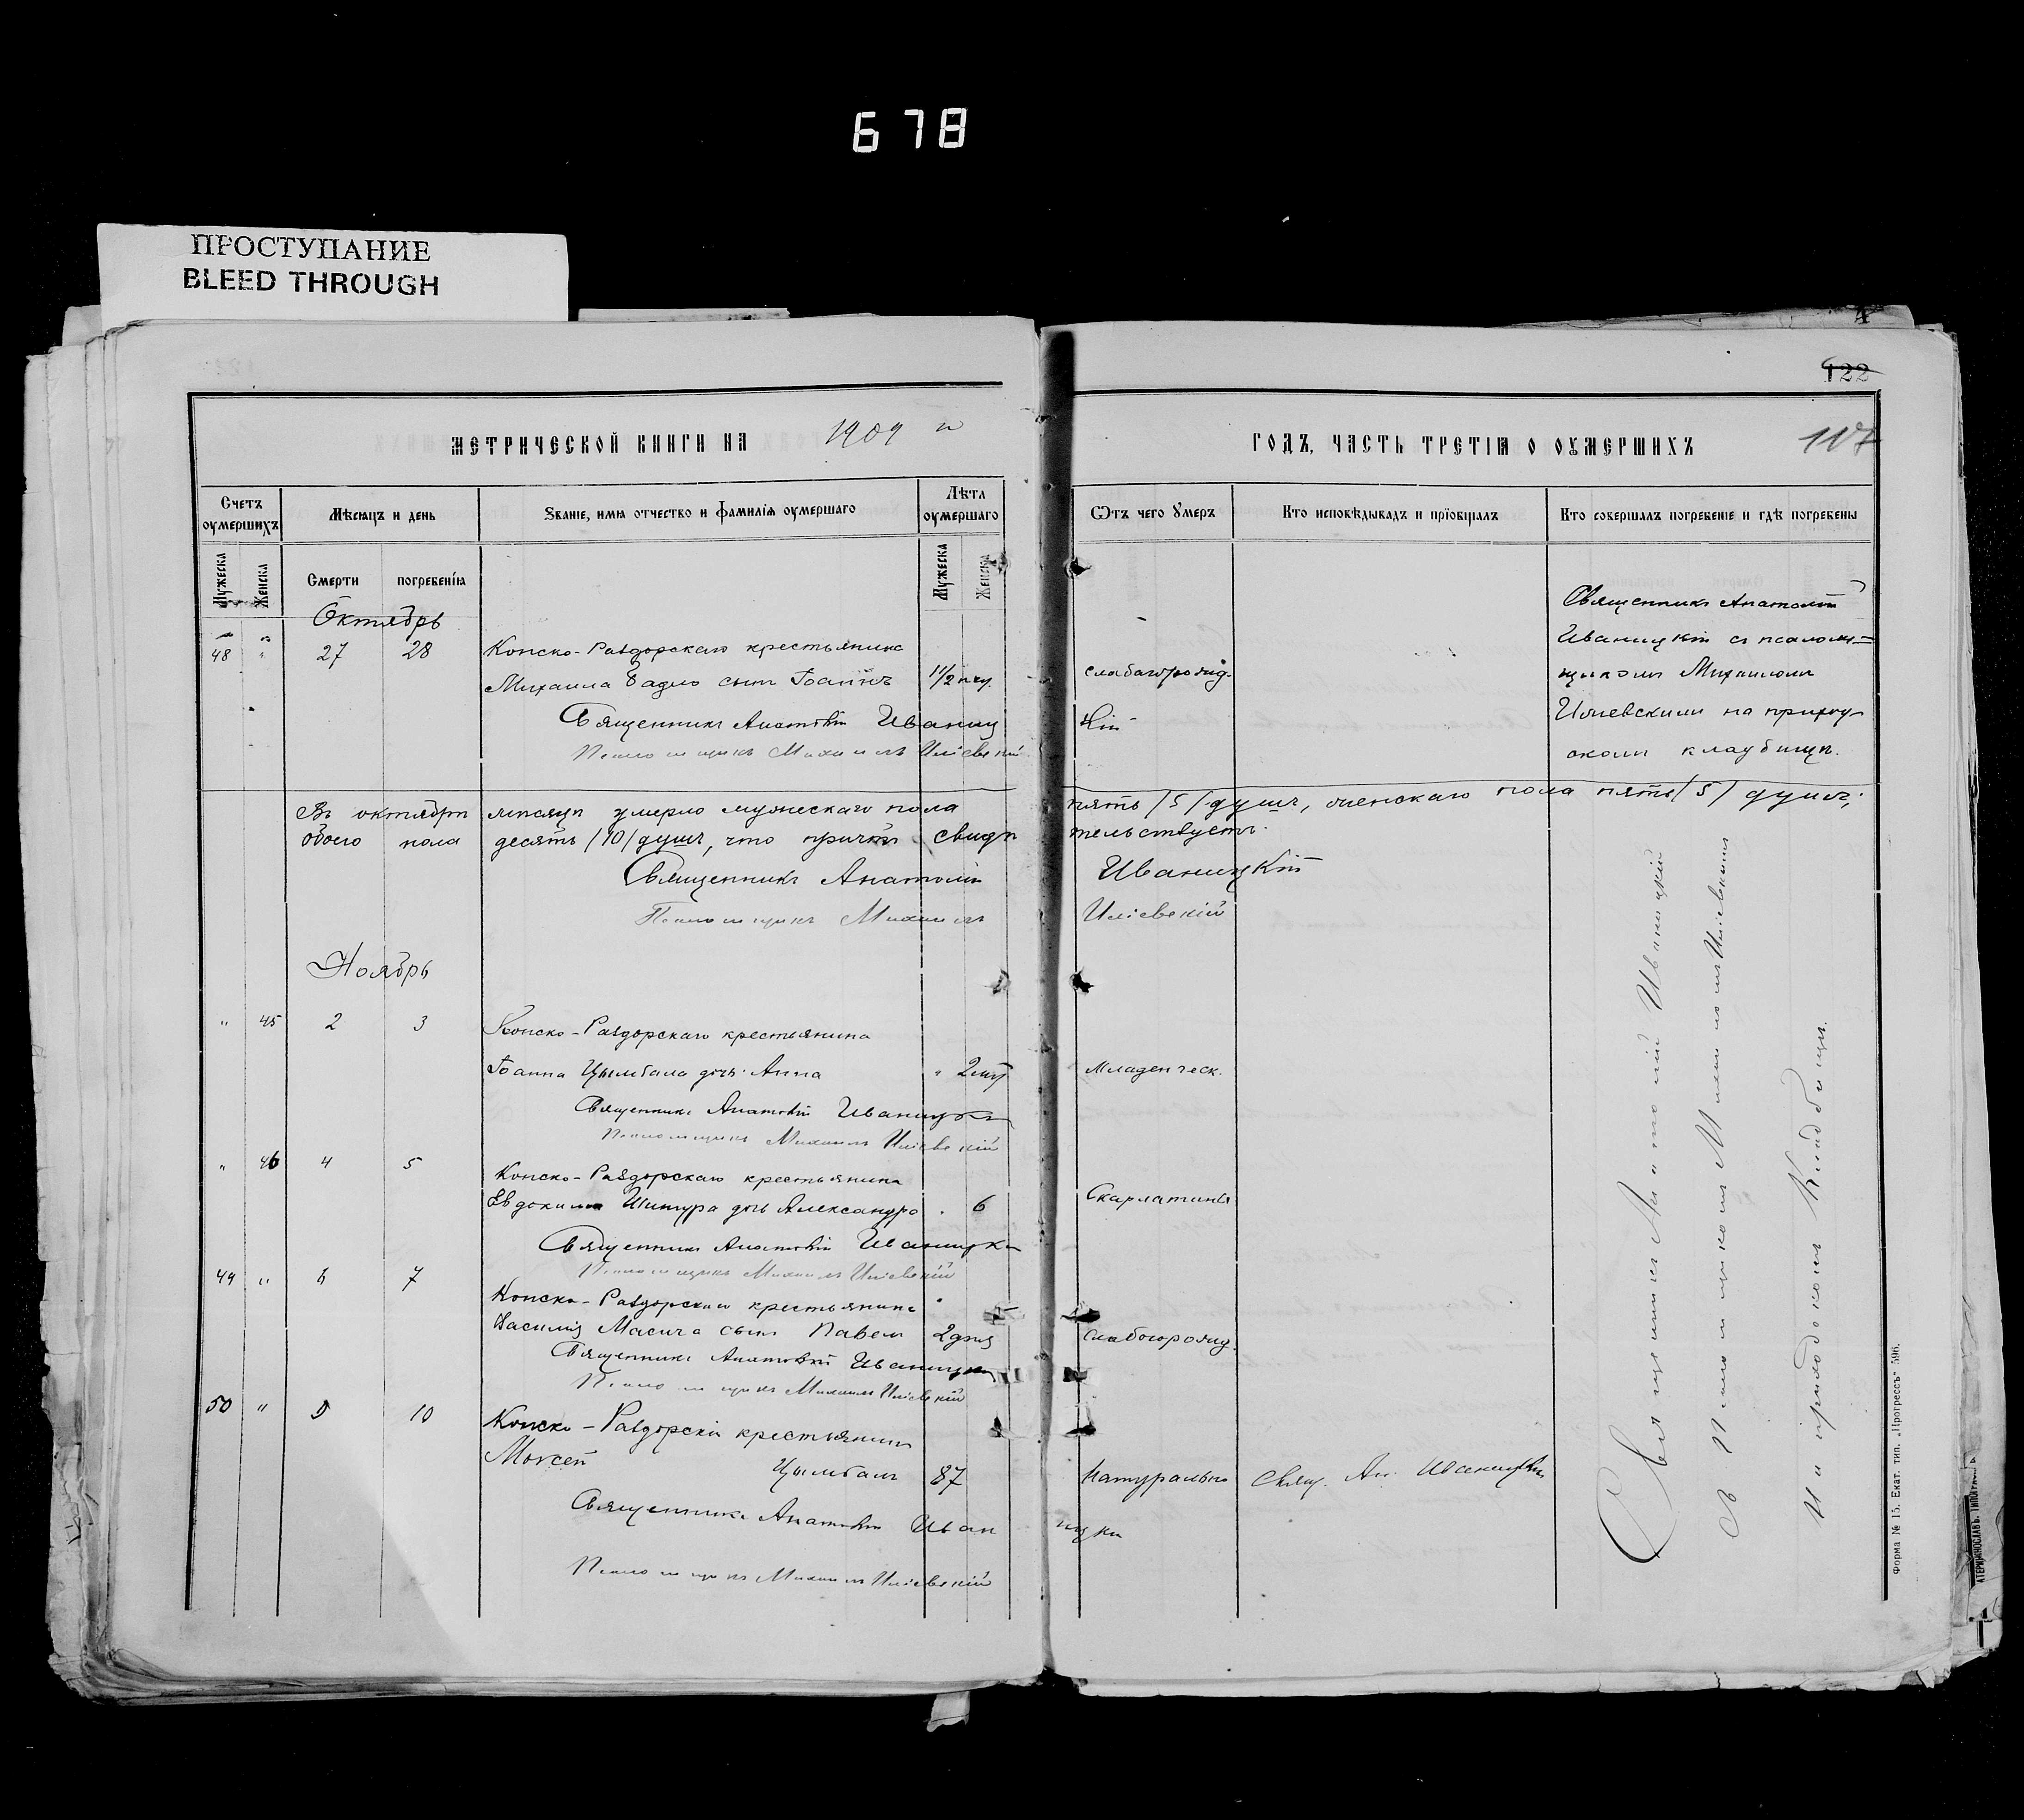 678
ПРОСТУПАНИЕ
BLEED THROUGH
4
122
МЕТРИЧЕСКОЙ КНИГИ НА 1909
ГОДЪ, ЧАСТЬ ТРЕТІѦ О ОУМЕРШИХЪ
117
Счетъ оумершихъ
Мѣсяцъ и день
Званіе, имя отчество и фамилія оумершаго
Лѣта оумершаго
Ѿтъ чего умеръ
Кто исповѣдывалъ и пріобщалъ
Кто совершалъ погребеніе и гдѣ погребены
Мужеска
Женска
Смерти
погребенія
Мужеска
Женска
Октябрь
48 " 27 28 Конско-Раздорскаго крестьянина
Михаила Бадло сынъ Іоаннъ 1 1/2 слабагорожд.
Священникъ Анатолій Иваницкій
Псаломщикъ Михаилъ Илiевскій
Священникъ Анатолій
Иваницкій съ псалом-
щикомъ Михаиломъ
Илiевскимъ на приход-
скомъ кладбищѣ.
Въ октябрѣ мѣсяцѣ умерло мужескаго пола пять /5/ душъ, женскаго пола пять /5/ душъ,
обоего пола десять /10/ душъ, что причтъ свидѣтельствуетъ.
Священникъ Анатолій Иваницкій
Псаломщикъ Михаилъ Илiевскій
Ноябрь
" 45 2 3 Конско-Раздорскаго крестьянина
Іоанна Цымбала дочь Анна " 2 Младенческ.
Священникъ Анатолій Иваницкій
Псаломщикъ Михаилъ Илiевскій
" 46 4 5 Конско-Раздорскаго крестьянина
Евдокима Шитура дочь Александра 6 Скарлатины
Священникъ Анатолій Иваницкій
Псаломщикъ Михаилъ Илiевскій
49 " 6 7 Конско-Раздорскаго крестьянина
Василія Масича сынъ Павелъ 2 дня слабогорожд.
Священникъ Анатолій Иваницкій
Псаломщикъ Михаилъ Илiевскій
50 " 9 10 Конско-Раздорскій крестьянинъ
Моисей Цымбалъ 87 Натурально Свящ. Ан. Иваницкій
Священникъ Анатолій Иваницкій
Псаломщикъ Михаилъ Илiевскій
Священникъ Анатолій Иваницкій
съ Псаломщикомъ Михаиломъ Илiевскимъ
на приходскомъ кладбищѣ.
Форма № 15. Екат. тип. „Прогрессъ" 596.